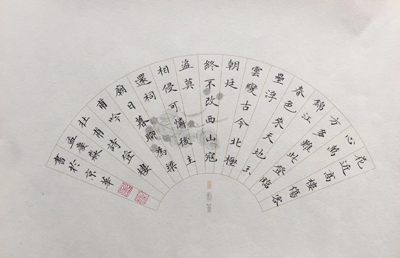 花近高樓傷客
心萬
方多難此登臨
錦江
春色來天地玉
壘浮
雲變古今北極
朝廷
終不改西山寇
盜莫
相侵可憐後主
還祠
廟日暮聊為梁
甫吟
杜甫詩登樓
孟慶
書於京華